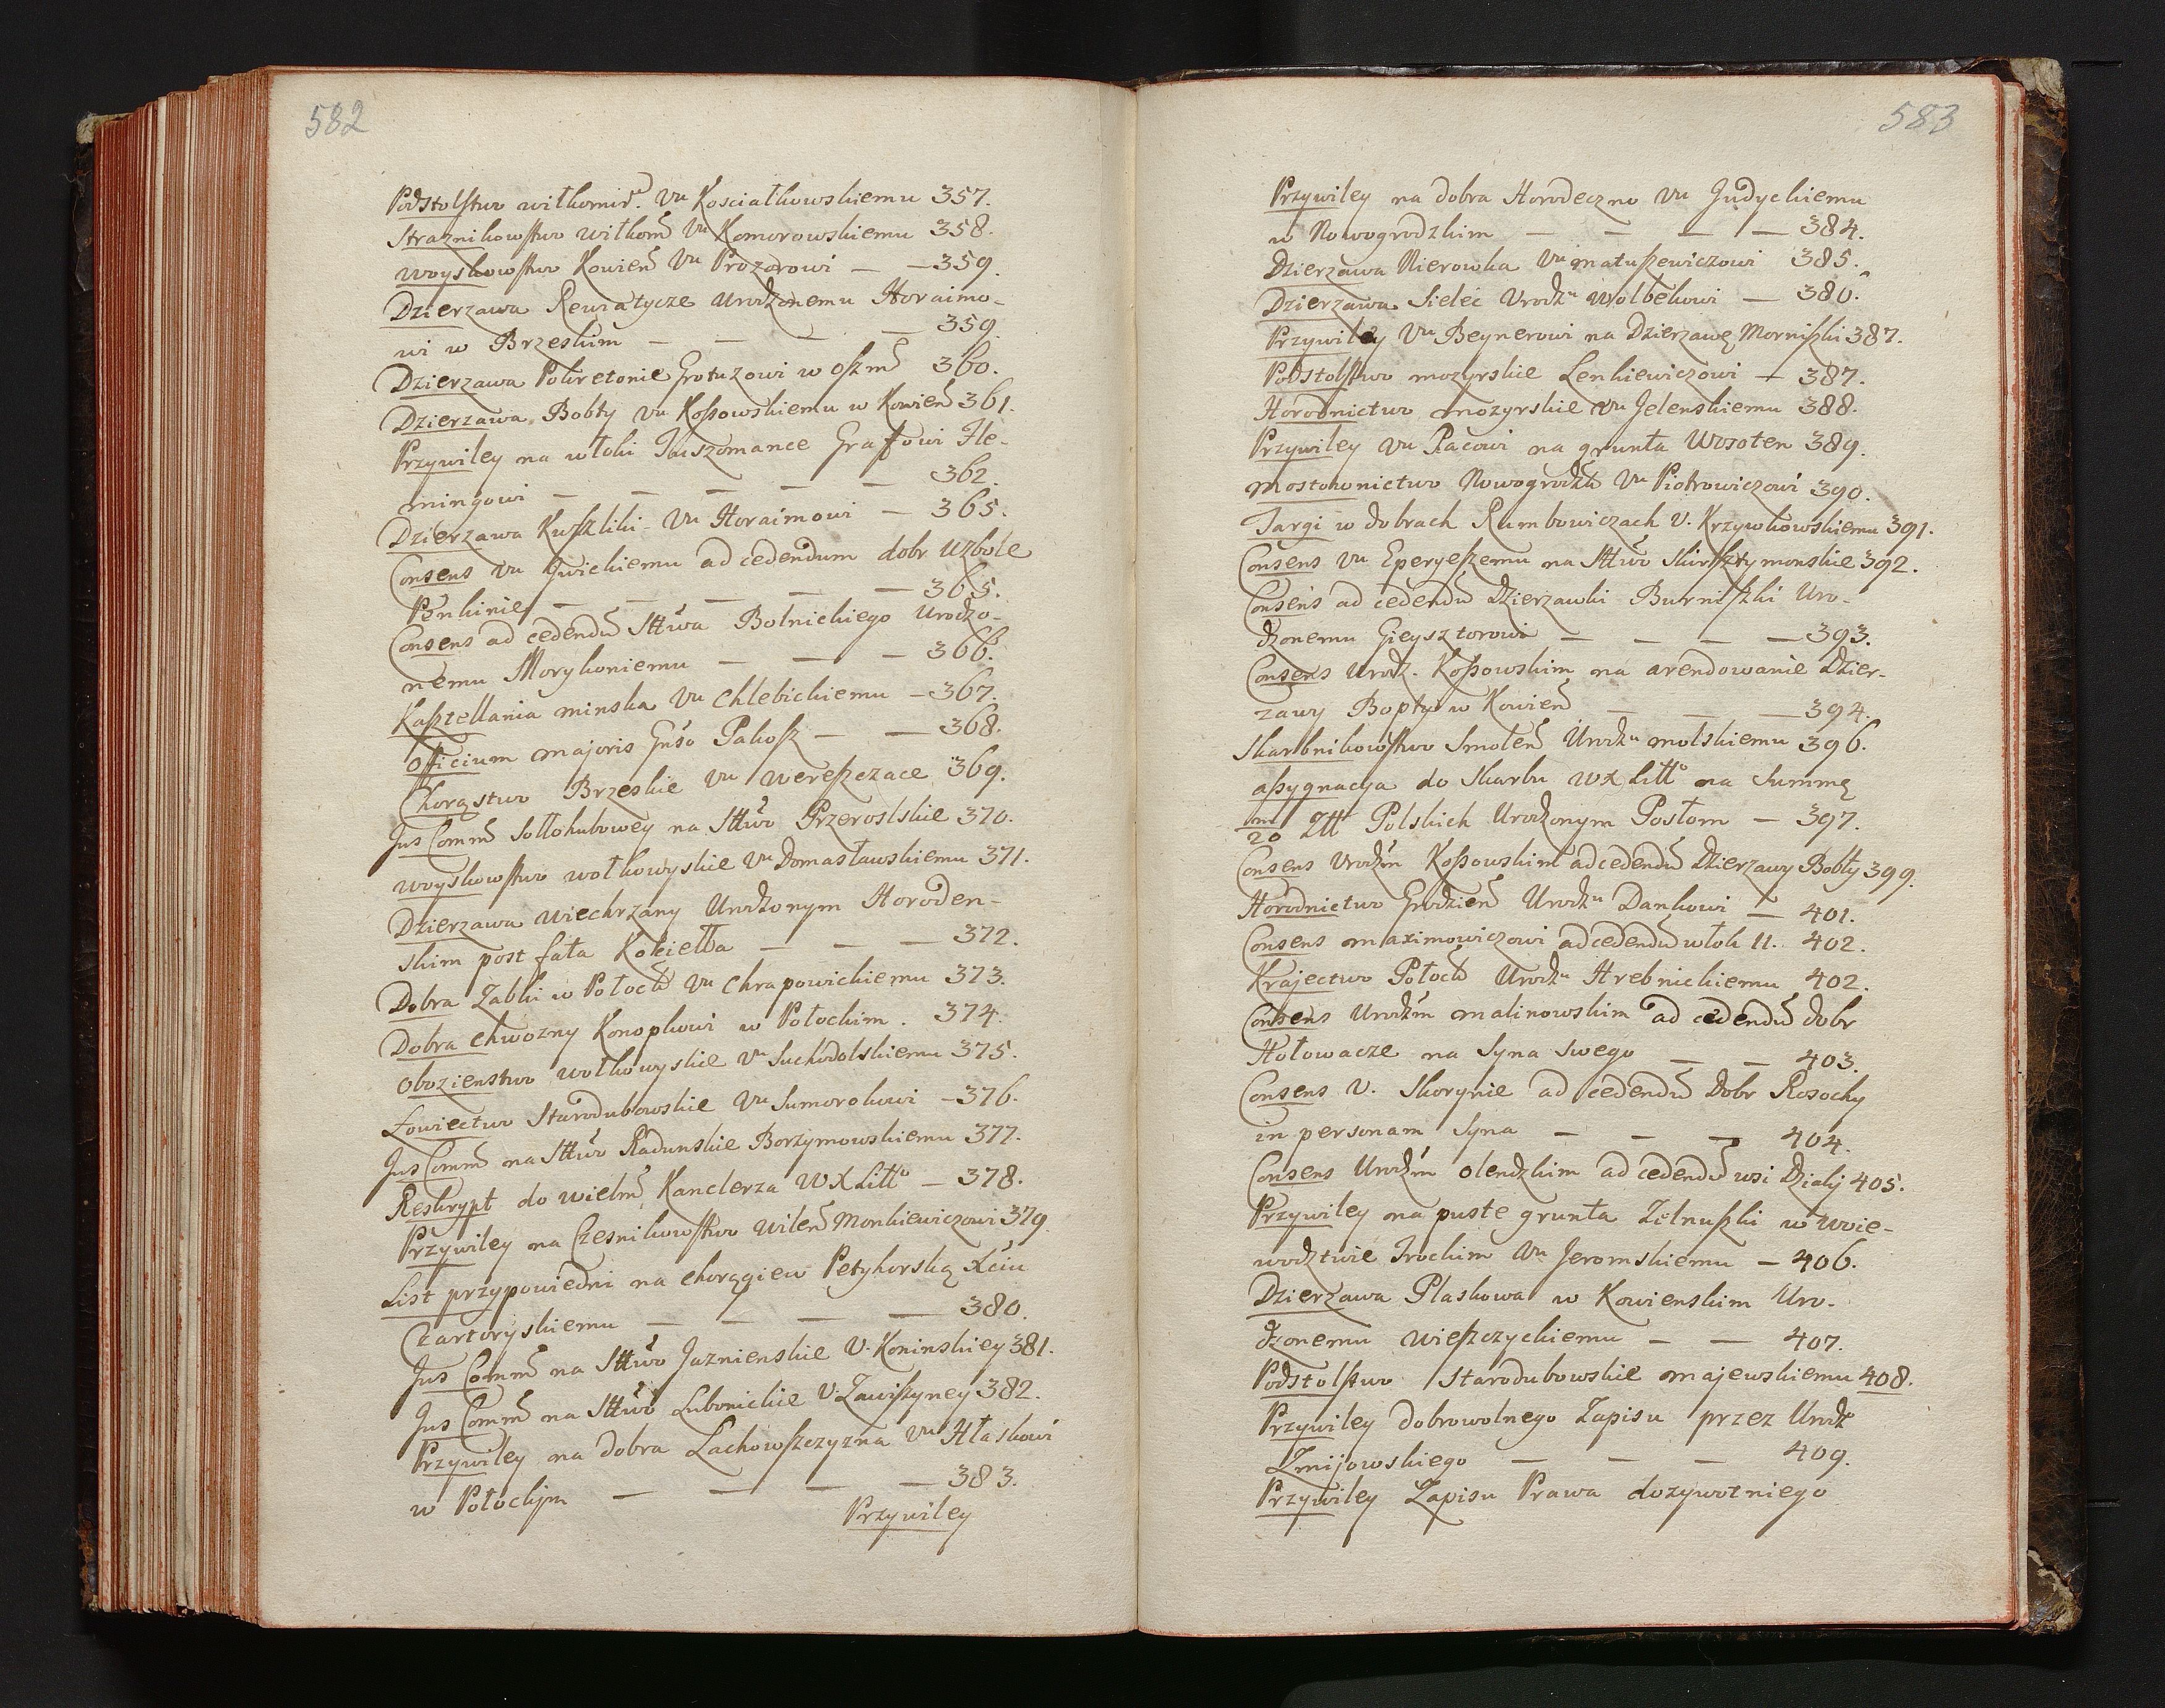 582
Podstolstwo wiłkomir. Vu Kosciałkowskiemu 357.
Straznikowstwo wiłkom Vu Komorowskiemu 358.
woyskowstwo Kowień Vu Prozorowi — — 359.
Dzierzawa Rewiatycze Urodzonemu Horaimo-
wi w Brzeskim — — — — 359.
Dzierzawa Pokretonie Grotuzowi w oszm 360.
Dzierzawa Bobty Vu Kossowskiemu w Kowień 361.
Przywiley na włoki Tauszomance Graffowi Fle-
mingowi — — — — — 362.
Dzierzawa Kuszliki Vu Horaimowi — 365.
Consens Vu Gwickiemu ad cedendum dobr Uzbole
Penkinie — — — — 365.
Consens ad cedendu Sttwa Botnickiego Urodzo-
nemu Morykoniemu — — — 366.
Kasztellania minska Vu Chlebickiemu — 367.
Officium majoris Gnso Pakosz — — 368.
Chorąstwo Brzeskie Vu wereszczace 369.
Jus Comm Sołłohubowey na Sttwo Przerostskie 370.
woyskowstwo wołkowyskie Vu Domasławskiemu 371.
Dzierzawa Wiechrzany Urodzonym Horoden-
skim post fata Kokiella — — — 372.
Dobra Zabki w Połock Vu Chrapowickiemu 373.
Dobra Chwozny Konopkowi w Połockim. 374.
Obozienstwo wołkowyskie Vu Suchodolskiemu 375.
Łowiectwo Starodubowskie Vu Sumorokowi — 376.
Jus Comm na Sttwo Radunskie Borzymowskiemu 377.
Reskrypt do wielm Kanclerza WXLitto — 378.
Przywiley na Czesnikowstwo wileń Monkiewiczowi 379
List przypowiedni na chorągiew Petyhorską Xciu
Czartoryskiemu — — — — 380.
Jus Comm na Sttwo Jaznienskie V. Koninskiey 381.
Jus Comm na Sttwo Lubonickie V. Zawiszyney 382.
Przywiley na dobra Lachowszczyzna Vu Hłaskowi
w Połockjm — — — — 383.
Przywiley
583
Przywiley na dobra Horodeczno Vu Judyckiemu
w Nowogrodzkim — — — — 384.
Dzierzawa Nierowka Vu matuszewiczowi 385.
Dzierzawa Sielec Urodzu Wolbekowi — 386.
Przywiley Vu Beynerowi na Dzierzawę Morniszki 387.
Podstolstwo mozyrskie Lenkiewiczowi — 387.
Horodnictwo mozyrskie Vu Jelenskiemu 388.
Przywiley Vu Pacowi na grunta Wosoten 389.
mostownictwo Nowogrodzk Vu Piotrowiczowi 390.
Targi w dobrach Rumbowiczach V. Krzywkowskiemu 391.
Consens Vu Eperyeszemu na Sttwo Skirsztymonskie 392.
Consens ad cedendu Dzierzawki Burniszki Uro-
dzonemu Gieysztorowi — — — — 393.
Consens Urodz. Kossowskim na arendowanie Dzier-
zawy Bopty w Kowień — — — 394.
Skarbnikowstwo Smoleń Urodzu molskiemu 396.
assygnacya do Skarbu WXLitto na Summę
m/20 Złł Polskich Urodzonym Posłom — 397.
Consens Urodzm Kossowskim ad cedendu Dzierzawy Bobty 399.
Horodnictwo Grodzień Urodzu Dankowi — 401.
Consens maximowiczowi ad cedendu włok 11. 402.
Krajectwo Połock Urodzu Hrebnickiemu 402.
Consens Urodzm malinowskim ad cedendu dobr
Hołowacze na Syna Swego — — 403.
Consens V. Skorynie ad cedendu Dobr Rosochy
in personam Syna — — — 404.
Consens Urodzm olendzkim ad cedendu wsi Dzialy 405.
Przywiley na puste grunta Zelnuszki w Woie-
wodztwie Trockim Vu Jeromskiemu — 406.
Dzierzawa Plaskowa w Kowienskim Uro-
dzonemu wieszczyckiemu — — 407.
Podstolstwo Starodubowskie majewskiemu 408.
Przywiley dobrowolnego Zapisu przez Urodz
Zmijowskiego — — — 409.
Przywiley Zapisu Prawa dozywotniego